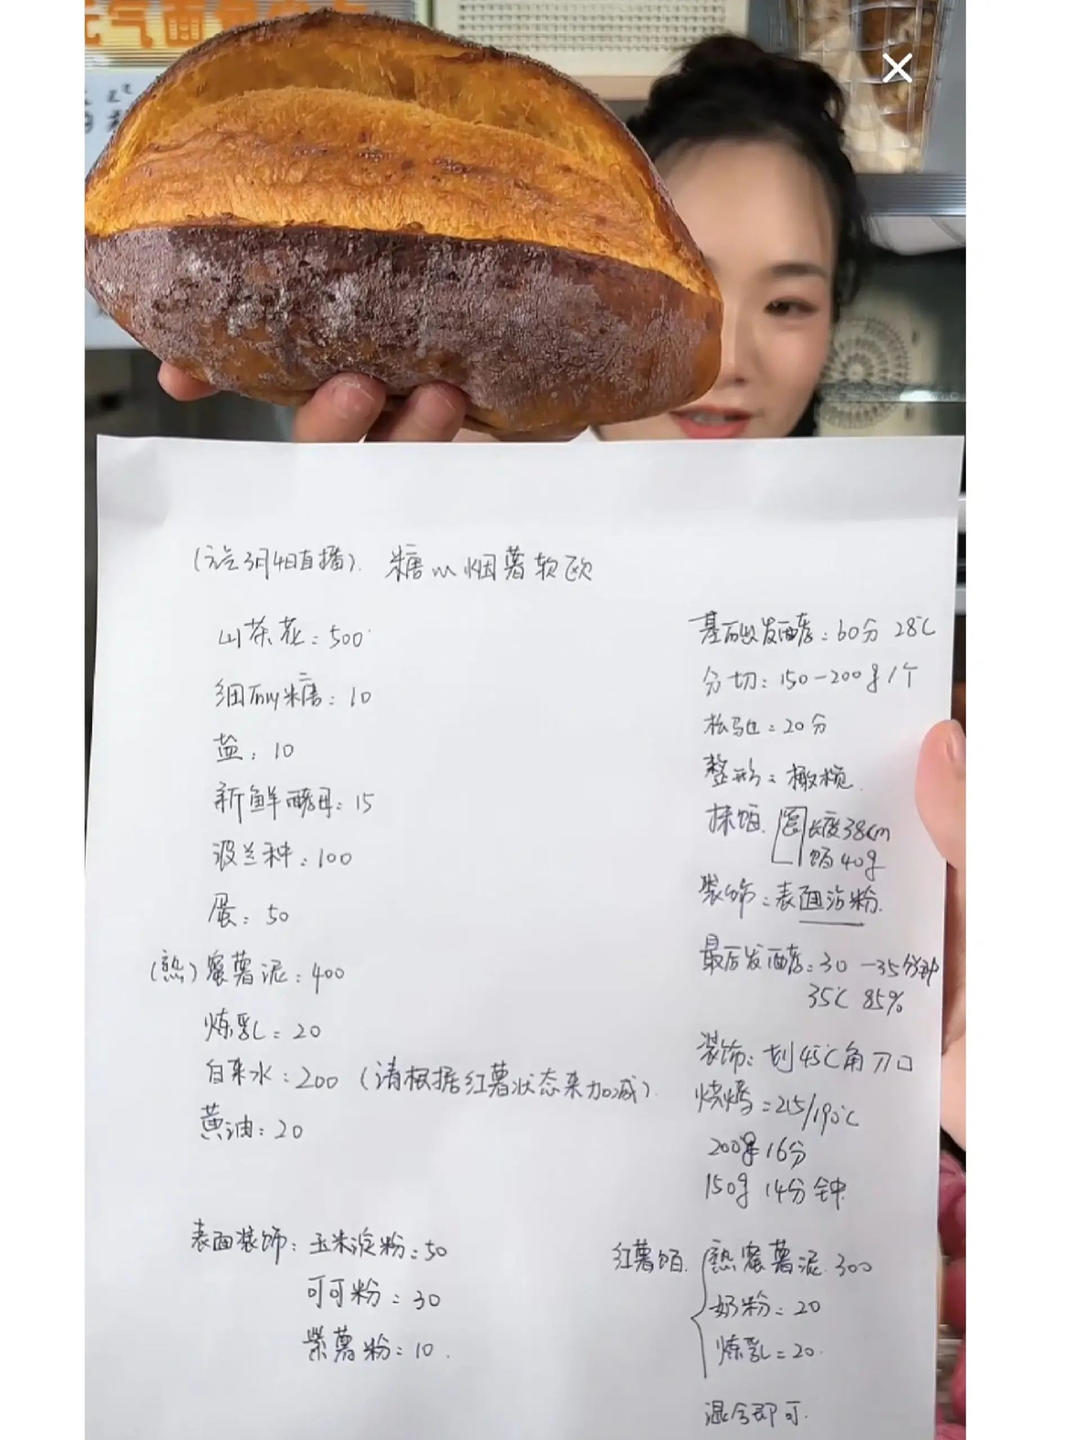 元气面包
(元气3月4日直播). 糖心烟薯软欧
山茶花：500
细砂糖：10
盐：10
新鲜酵母：15
波兰种：100
蛋：50
(熟)蜜薯泥：400
炼乳：20
自来水：200 (请根据红薯状态来加减).
黄油：20
表面装饰：玉米淀粉：50
可可粉：30
紫薯粉：10.
基础发酵：60分 28℃
分切：150-200g/个
松弛：20分
整形：橄榄.
抹馅. 长度38cm
馅40g
装饰：表面沾粉.
最后发酵：30-35分钟
35℃ 85%
装饰：划45℃角刀口
烧烤：215/190℃
200g 16分
150g 14分钟
红薯馅. 熟蜜薯泥.300
奶粉：20
炼乳：20.
混合即可.